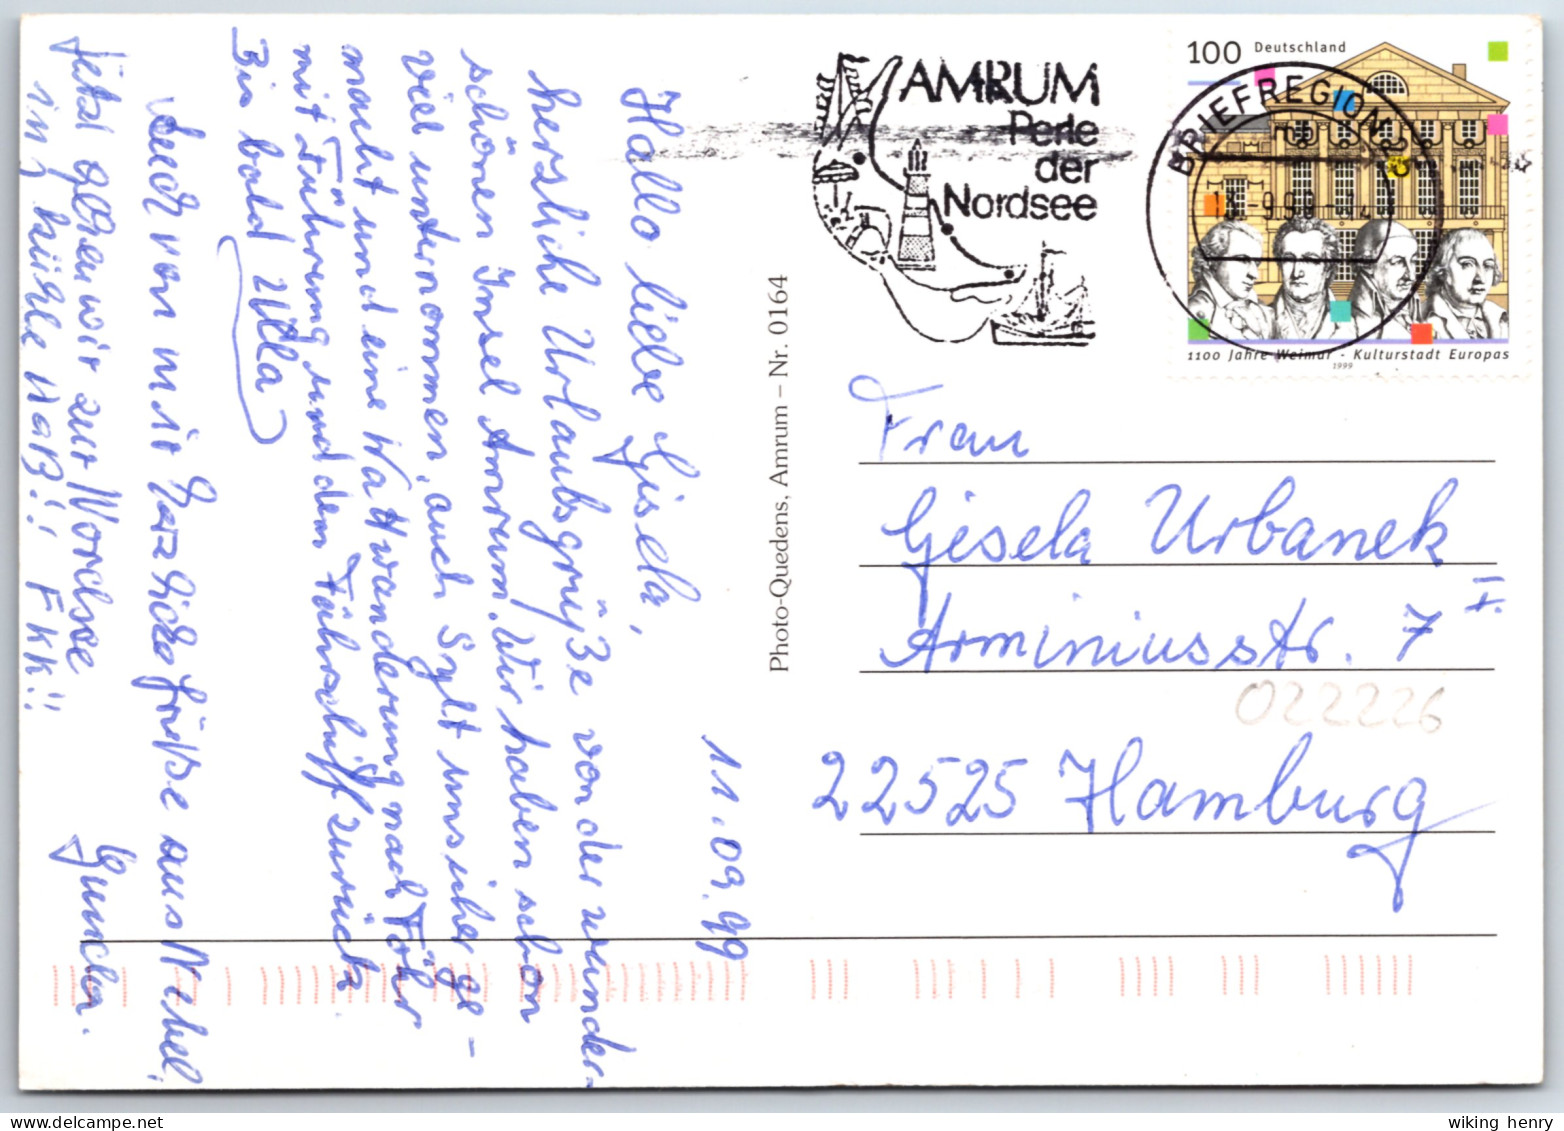 11.09.99
Hallo liebe Gisela,
herzliche Urlaubsgrüße von der wunder-
schönen Insel Amrum. Wir haben schon
viel unternommen, auch Sylt unsicher ge-
macht und eine Wattwanderung nach Föhr
mit Führung und dem Fährschiff zurück
Bis bald Ulla
Auch von mir herzliche Grüße aus Nebel,
Jetzt gehen wir zur Nordsee
in's kühle Naß!! FKK!!
Photo-Quedens, Amrum – Nr. 0164
AMRUM
Perle
der
Nordsee
BRIEFREGION 25
mb
-9.99-
100 Deutschland
1100 Jahre Weimar - Kulturstadt Europas
1999
Frau
Gisela Urbanek
Arminiusstr. 7
022226
22525 Hamburg
wiking henry